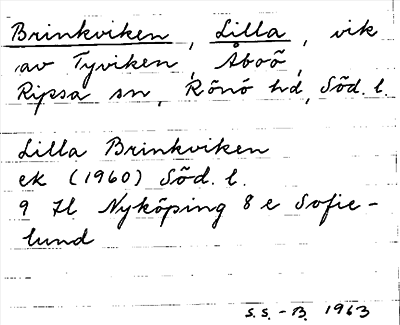 Brinkviken, Lilla, vik
av Tyviken, Åboö,
Ripsa sn, Rönö hd, Söd. l.
Lilla Brinkviken
ek (1960) Söd. l.
9 H Nyköping 8 e Sofie-
lund
S.S.-B. 1963